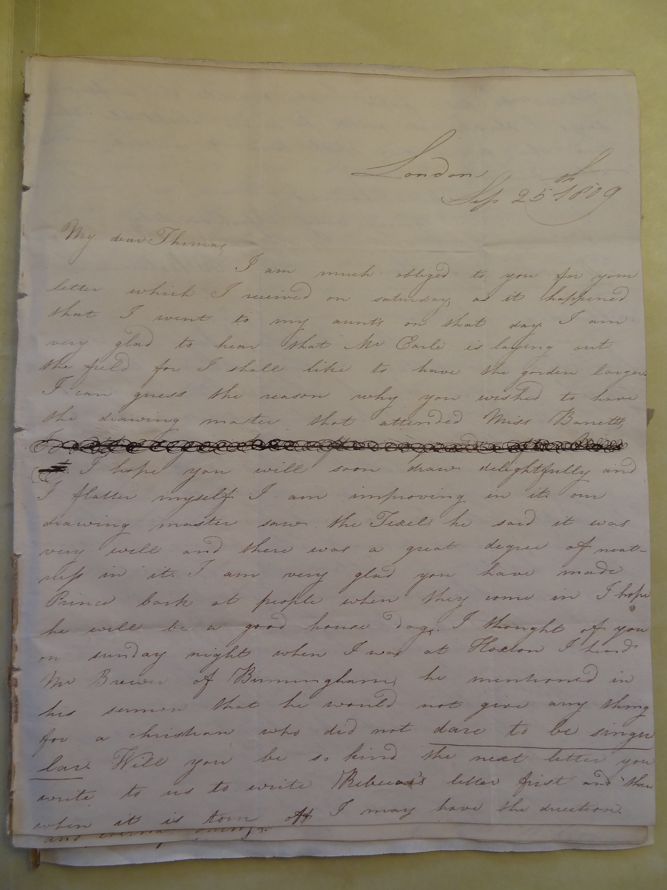 London
Sep 25th 1819
My dear Thomas
I am much obliged to you for your
letter which I received on saturday as it happened
that I went to my aunts on that day I am
very glad to hear that Mr Earle is laying out
the field for I shall like to have the garden larger
I can guess the reason why you wished to have
the drawing master that attended Miss Barretts,
I hope you will soon draw delightfully and
I flatter myself I am improving in it our
drawing master saw the he said it was
very well and there was a great degree of neat-
ness in it. I am very glad you have made
Prince bark at people when they come in I hope
he will be a good house dog. I thought of you
on sunday night when I was at Hoxton I heard
Mr Brewer of Birmingham, he mentioned in
his sermon that he would not give any thing
for a christian who did not dare to be singu
lar. Will you be so kind the next letter you
write to us to write Rebecca's letter first and then
when it is torn off I may have the direction.
and